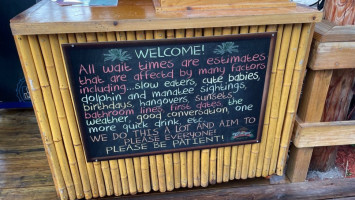 WELCOME!
All wait times are estimates
that are affected by many factors
including...slow eaters, cute babies,
dolphin and manatee sightings,
birthdays, hangovers, sunsets,
bathroom lines, first dates, the
weather, good conversation, one
more quick drink, etc.
WE DO THIS A LOT AND AIM TO
PLEASE EVERYONE!
PLEASE BE PATIENT!